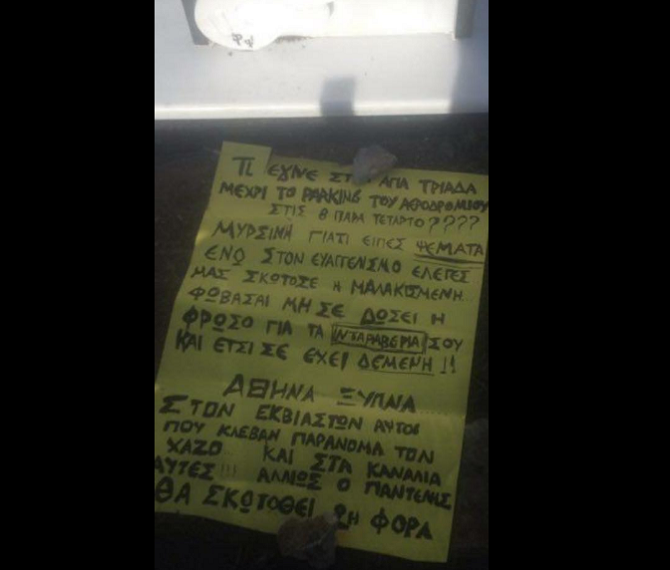 ΤΙ ΕΓΙΝΕ ΣΤ ΑΓΙΑ ΤΡΙΑΔΑ
ΜΕΧΡΙ ΤΟ PARKING ΤΟΥ ΑΕΡΟΔΡΟΜΙΟΥ
ΣΤΙΣ 8 ΠΑΡΑ ΤΕΤΑΡΤΟ????
ΜΥΡΣΙΝΗ ΓΙΑΤΙ ΕΙΠΕΣ ΨΕΜΑΤΑ
ΕΝΩ ΣΤΟΝ ΕΥΑΓΓΕΛΙΣΜΟ ΕΛΕΓΕΣ
ΜΑΣ ΣΚΟΤΩΣΕ Η ΜΑΛΑΚΙΣΜΕΝΗ
ΦΟΒΑΣΑΙ ΜΗ ΣΕ ΔΩΣΕΙ Η
ΦΡΩΣΟ ΓΙΑ ΤΑ ΝΤΑΡΑΒΕΡΙΑ ΣΟΥ
ΚΑΙ ΕΤΣΙ ΣΕ ΕΧΕΙ ΔΕΜΕΝΗ !!
ΑΘΗΝΑ ΞΥΠΝΑ
ΣΤΟΝ ΕΚΒΙΑΣΤΩΝ ΑΥΤΟΙ
ΠΟΥ ΚΛΕΒΑΝ ΠΑΡΑΝΟΜΑ ΤΟΝ
ΧΑΖΟ ΚΑΙ ΣΤΑ ΚΑΝΑΛΙΑ
ΑΥΤΕΣ!!! ΑΛΛΙΩΣ Ο ΠΑΝΤΕΛΗΣ
ΘΑ ΣΚΩΤΟΘΕΙ 2Η ΦΟΡΑ